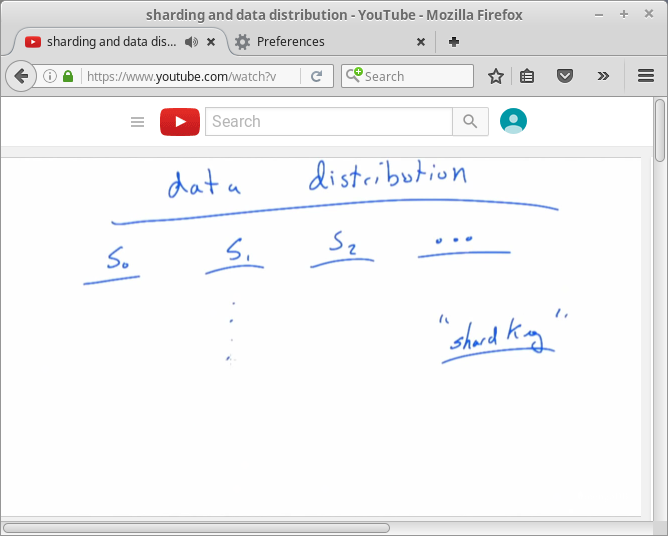 sharding and data distribution - YouTube - Mozilla Firefox
sharding and data dis... Preferences
https://www.youtube.com/watch?v Search
Search
data distribution
S0 S1 S2 ...
"shard key"